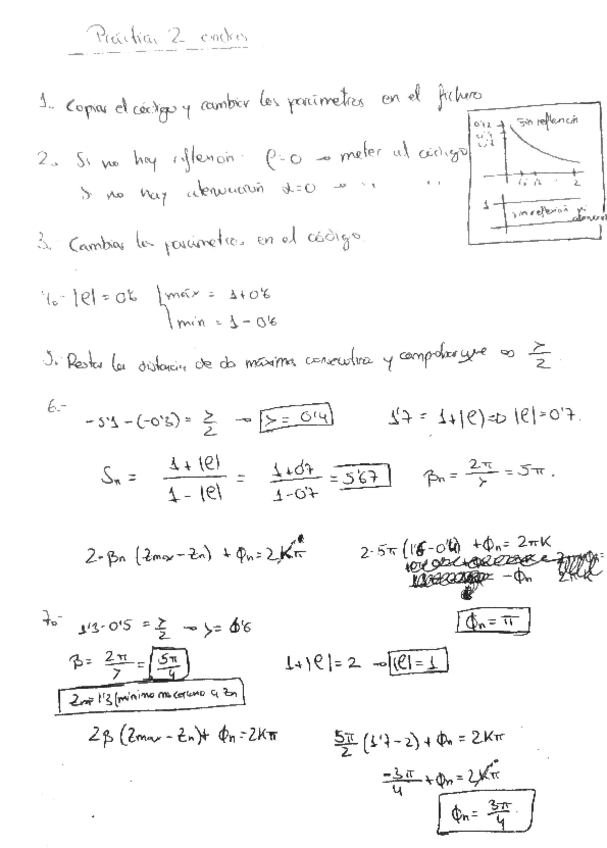 Práctica 2 ondas
1.- Copiar el código y cambiar los parámetros en el fichero
2.- Si no hay reflexión: ρ=0 → meter al código
Si no hay atenuación α=0 → '' ''
sin reflexión
2
1
sin reflexión ni
3. Cambiar los parámetros en el código.
4.- |ρ| = 0'6 máx = 1+0'6
mín = 1-0'6
5. Restar la distancia de dos máximos consecutivos y comprobar que es λ/2
6.-
-5'1-(-0'3) = λ/2 → λ = 0'4 1'7 = 1+|ρ| ⇒ |ρ|=0'7.
Sn = 1+|ρ| / 1-|ρ| = 1+0'7 / 1-0'7 = 5'67 βn = 2π/λ = 5π.
2·βn (Zmax-Zn) + Φn = 2Kπ 2·5π (1'6-0'4) + Φn = 2πK
-Φn
Φn = π
7.-
1'3-0'5 = λ/2 → λ = 1'6
β = 2π/λ = 5π/4 1+|ρ| = 2 → |ρ| = 1
Zm=1'3 (mínimo más cercano a Zn
2β (Zmax-Zn) + Φn = 2Kπ 5π/2 (1'7-2) + Φn = 2Kπ
-3π/4 + Φn = 2Kπ
Φn = 3π/4